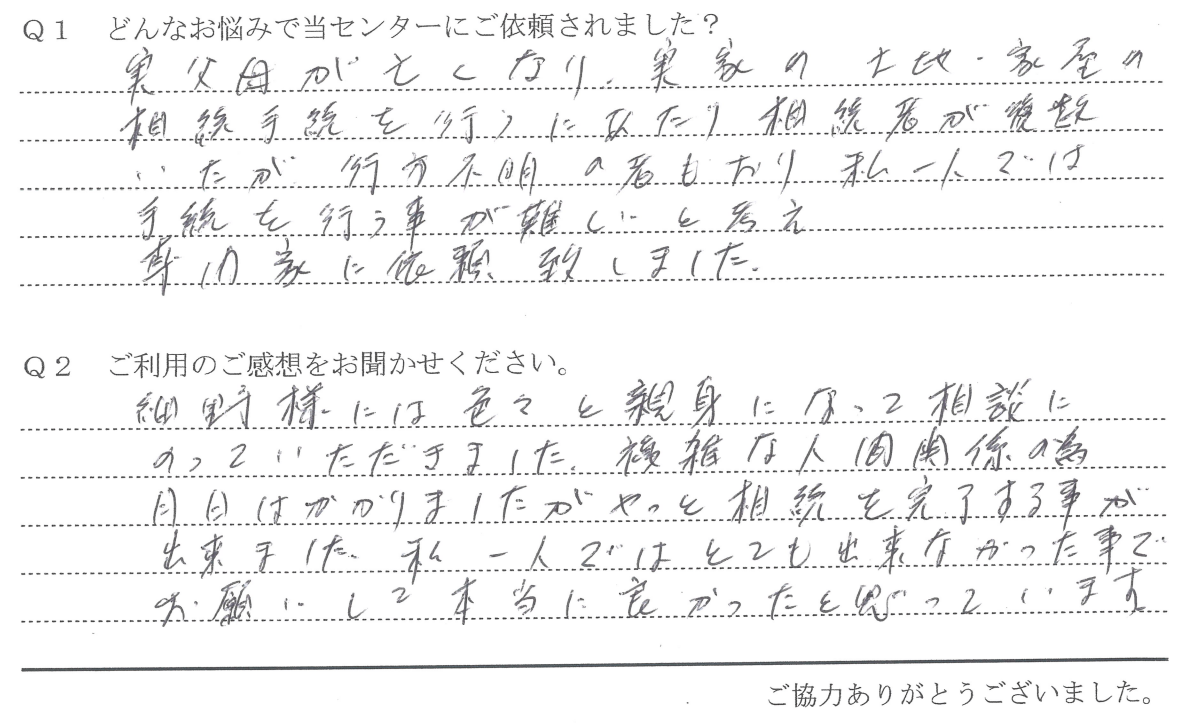 Q1 どんなお悩みで当センターにご依頼されました？
実父母が亡くなり、実家の土地・家屋の
相続手続を行うにあたり相続者が複数
いたが行方不明の者もおり私一人では
手続を行う事が難しいと考え
専門家に依頼致しました。
Q2 ご利用のご感想をお聞かせください。
細野様には色々と親身になって相談に
のっていただきました。複雑な人間関係の為
月日はかかりましたがやっと相続を完了する事が
出来ました。私一人ではとても出来なかった事で
お願いして本当に良かったと思っています
ご協力ありがとうございました。